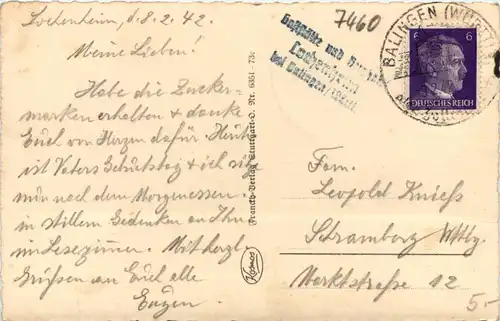 Lochenheim, d. 8.2.42.
Meine Lieben!
Habe die Zucker-
marken erhalten & danke
Euch von Herzen dafür. Heute
ist Vaters Geburtstag & ich
nach dem Morgenessen
in stillem Gedenken an Ihn
im Lesezimmer. Mit herzl.
Grüßen an Euch alle
Eugen.
Franckh-Verlag Stuttgart-O. Nr. 6351 73c
Kosmos
7460
Gaststätte und
Lochenheim
bei Balingen
BALINGEN (WÜRTT
6 6
DEUTSCHES REICH
Fam.
Leopold Knieß
Schramberg Wttbg.
Marktstraße 12
5.-